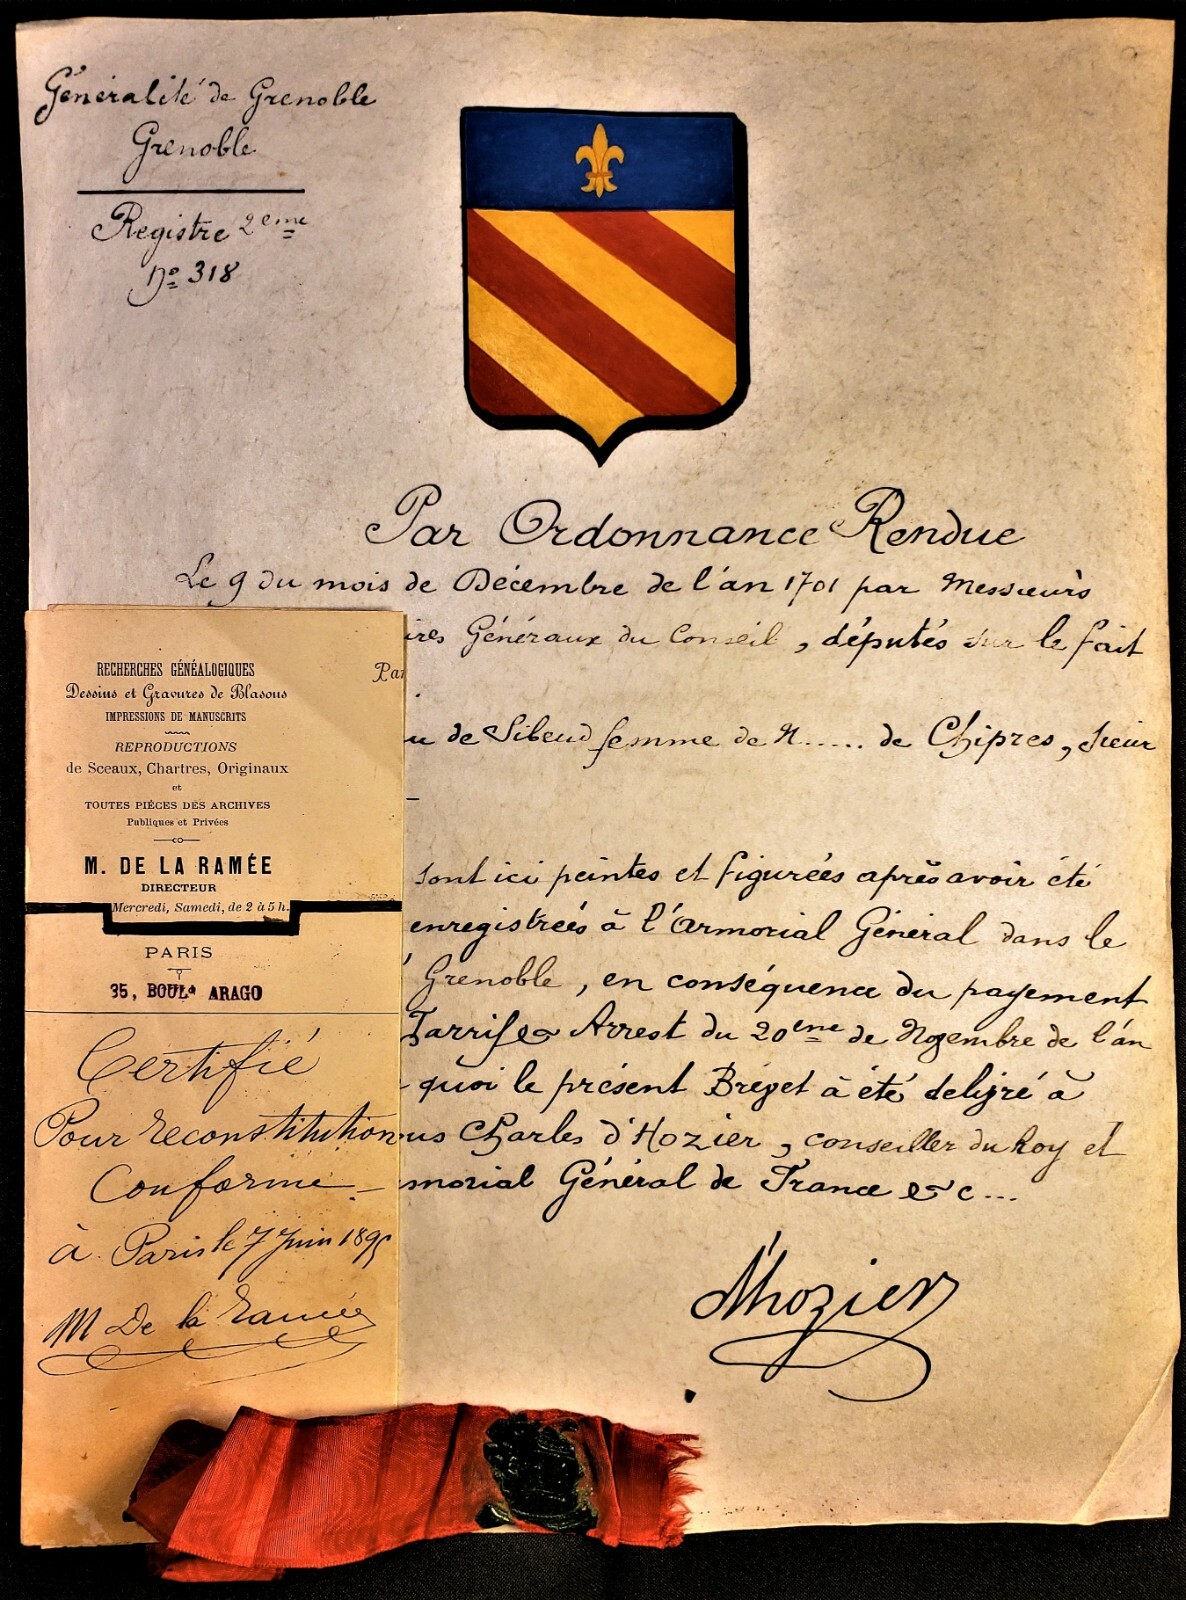 Généralité de Grenoble
Grenoble
Registre 2eme
No 318
Par Ordonnance Rendue
Le 9 du mois de Décembre de l'an 1701 par Messieurs
ires Généraux du Conseil, députés sur le fait
Par
u de Sibeud femme de N..... de Chipres, sieur
sont ici peintes et figurées après avoir été
enregistrées à l'Armorial Général dans le
Grenoble, en conséquence du payement
Tarrif & Arrest du 20eme de Novembre de l'an
quoi le présent Brevet à été delivré à
us Charles d'Hozier, conseiller du Roy et
morial Général de France & c...
D'hozier
RECHERCHES GÉNÉALOGIQUES
Dessins et Gravures de Blasons
IMPRESSIONS DE MANUSCRITS
REPRODUCTIONS
de Sceaux, Chartres, Originaux
et
TOUTES PIÈCES DES ARCHIVES
Publiques et Privées
M. DE LA RAMÉE
DIRECTEUR
Mercredi, Samedi, de 2 à 5 h.
PARIS
35, BOULd ARAGO
Certifié
Pour reconstitution
Conforme
à Paris le 7 Juin 1895
M De la Ramée